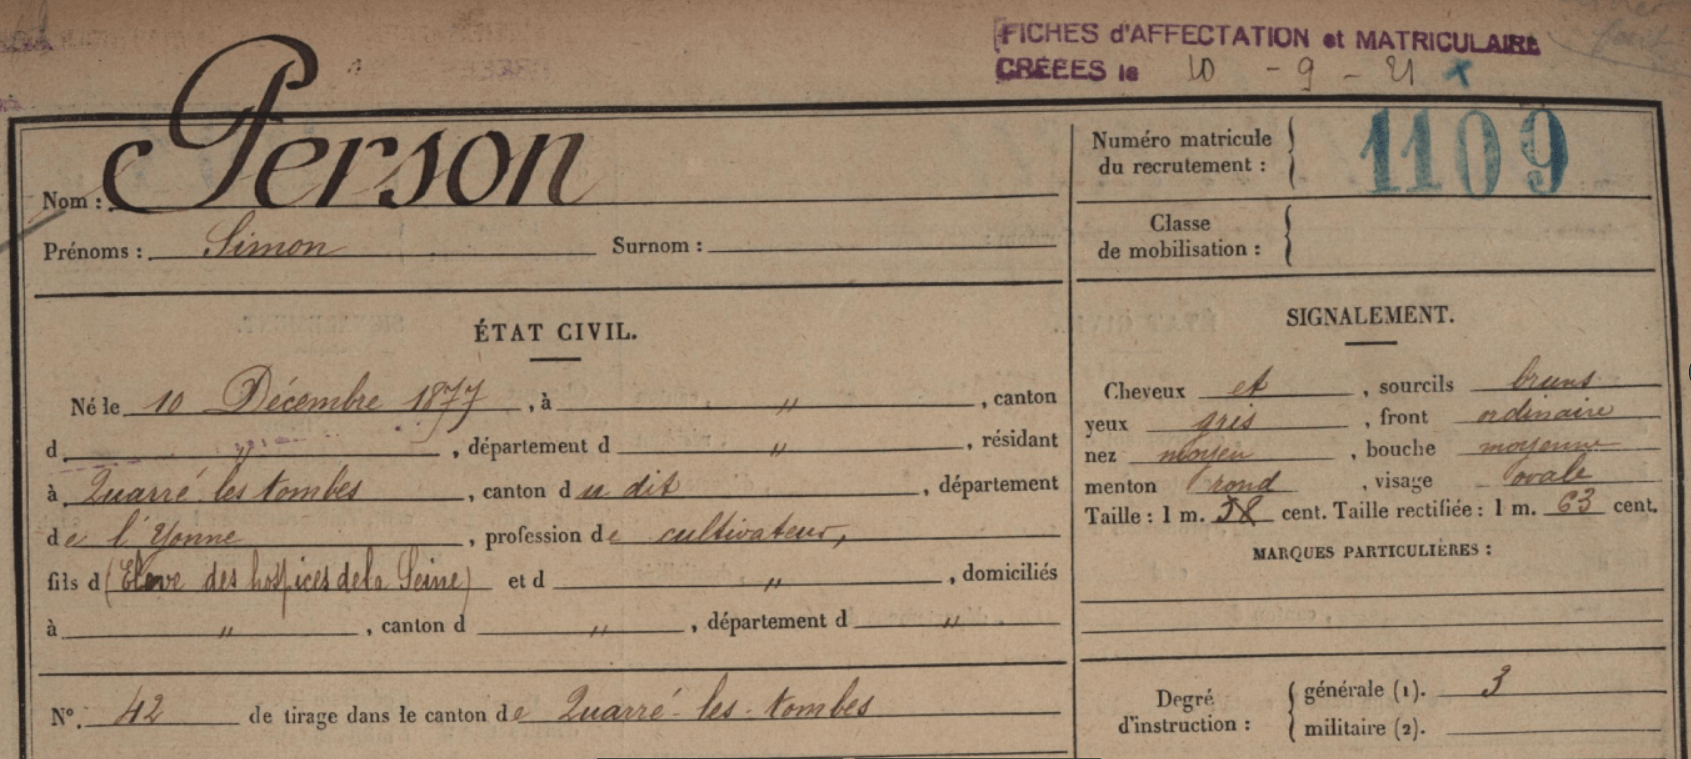 FICHES d'AFFECTATION et MATRICULAIRE
CRÉÉES le 10 - 9 - 21 x
Nom : Person
Prénoms : Simon Surnom :
Numéro matricule
du recrutement : 1109
Classe
de mobilisation :
ÉTAT CIVIL.
Né le 10 Décembre 1877, à " , canton
d " , département d " , résidant
à Quarré les tombes , canton du dit , département
de l'Yonne , profession de cultivateur,
fils d (Elève des hospices de la Seine) et d " , domiciliés
à " , canton d " , département d "
N°. 42 de tirage dans le canton de Quarré-les-tombes
SIGNALEMENT.
Cheveux et , sourcils bruns
yeux gris , front ordinaire
nez moyen , bouche moyenne
menton rond , visage ovale
Taille : 1 m. 58 cent. Taille rectifiée : 1 m. 63 cent.
MARQUES PARTICULIÈRES :
Degré
d'instruction :
générale (1). 3
militaire (2).